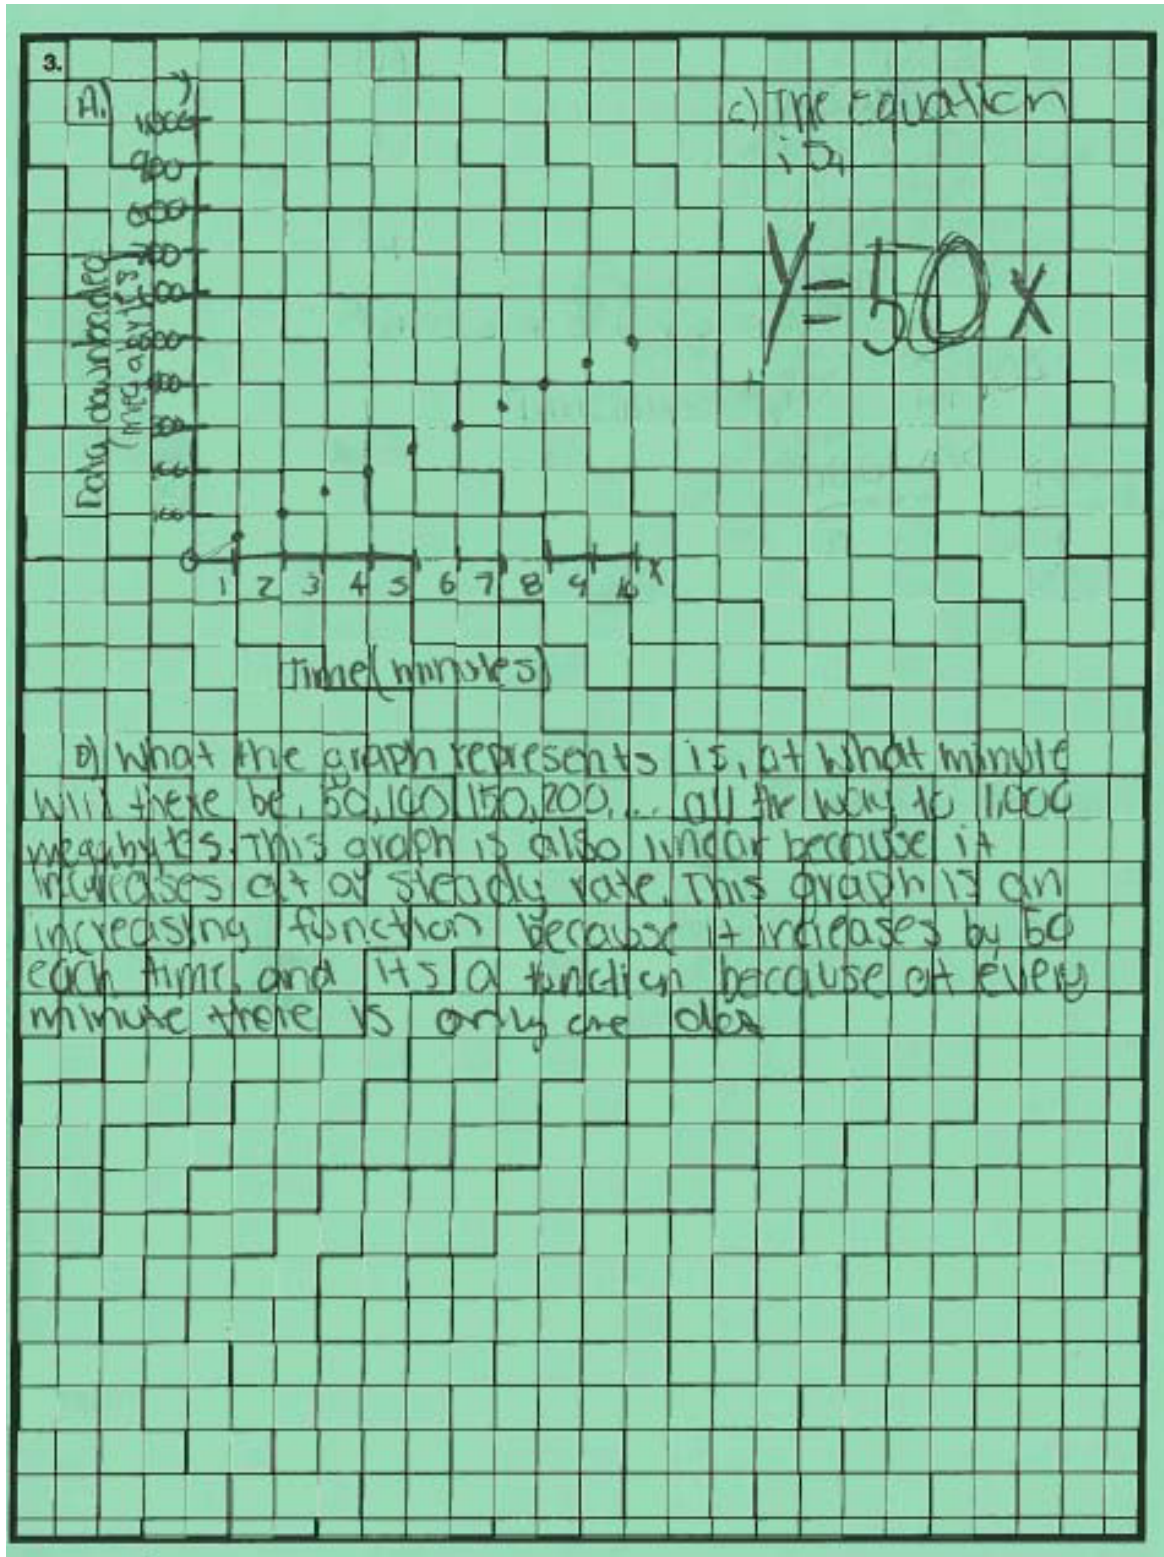 3.
A.)
y
1,000
900
800
700
600
500
400
300
200
100
0
Data downloaded
(megabytes)
1 2 3 4 5 6 7 8 9 10 x
Time(minutes)
c) The Equation
is,
Y=50x
B) What the graph represents is, at what minute
will there be, 50,100,150,200,... all the way to 1,000
megabytes. This graph is also linear because it
increases at a steady rate. This graph is an
increasing function because it increases by 50
each time, and its a function because at every
minute there is only one